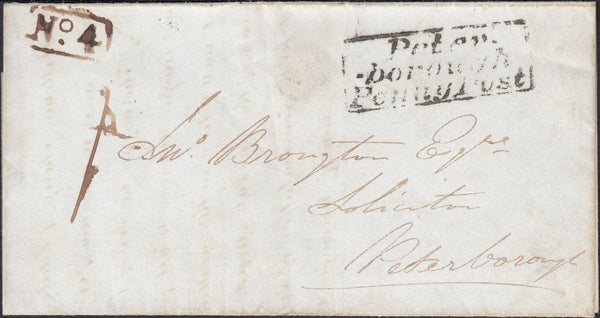 No. 4
Peter
-borough
Penny Post
1
Jno Brougton Esqre
Solicitor
Peterborough